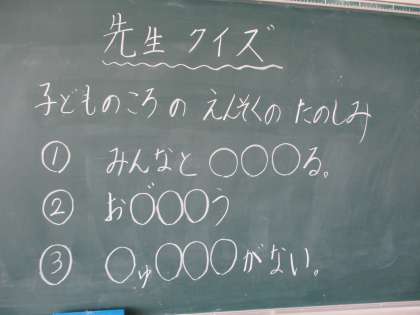 先生 クイズ
子どものころの えんそくの たのしみ
① みんなと ○○○る。
② お○゛○○う
③ ○ゅ○○○がない。